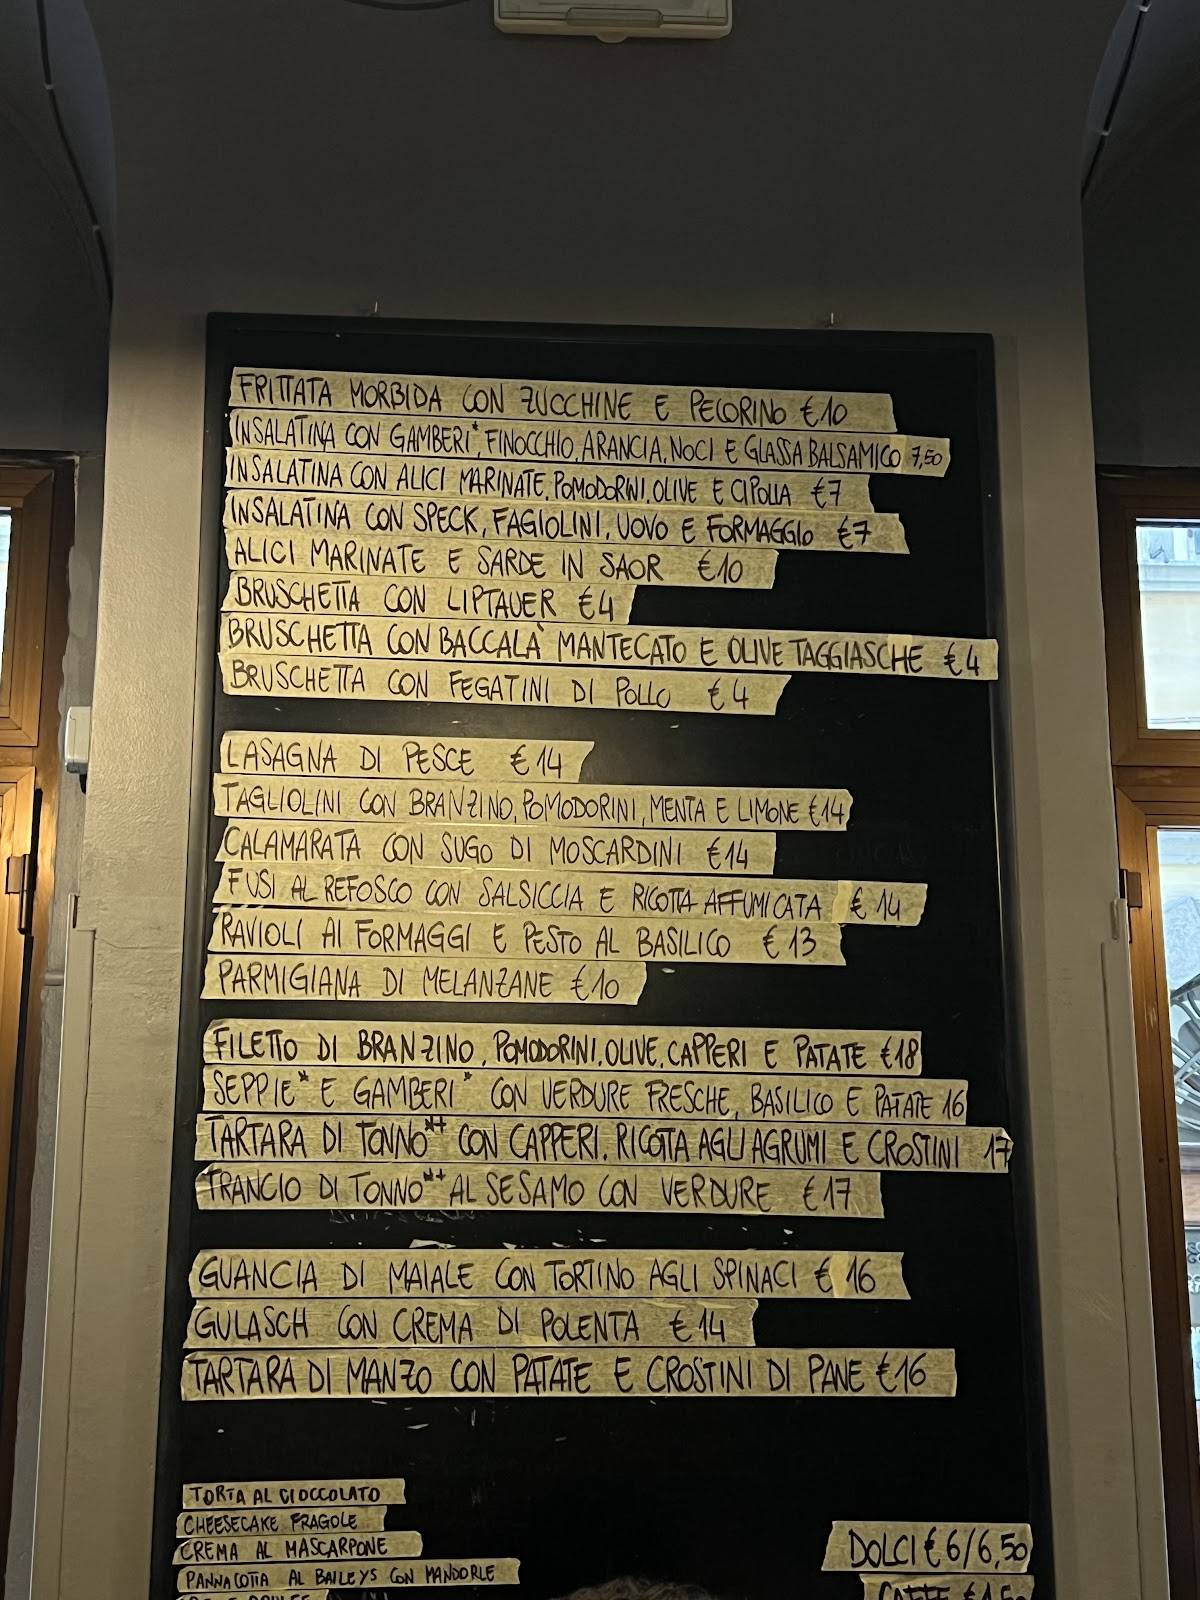 FRITTATA MORBIDA CON ZUCCHINE E PECORINO €10
INSALATINA CON GAMBERI*, FINOCCHIO, ARANCIA, NOCI E GLASSA BALSAMICO 7,50
INSALATINA CON ALICI MARINATE, POMODORINI, OLIVE E CIPOLLA €7
INSALATINA CON SPECK, FAGIOLINI, UOVO E FORMAGGIO €7
ALICI MARINATE E SARDE IN SAOR €10
BRUSCHETTA CON LIPTAUER €4
BRUSCHETTA CON BACCALÀ MANTECATO E OLIVE TAGGIASCHE €4
BRUSCHETTA CON FEGATINI DI POLLO €4
LASAGNA DI PESCE €14
TAGLIOLINI CON BRANZINO, POMODORINI, MENTA E LIMONE €14
CALAMARATA CON SUGO DI MOSCARDINI €14
FUSI AL REFOSCO CON SALSICCIA E RICOTTA AFFUMICATA €14
RAVIOLI AI FORMAGGI E PESTO AL BASILICO €13
PARMIGIANA DI MELANZANE €10
FILETTO DI BRANZINO, POMODORINI, OLIVE, CAPPERI E PATATE €18
SEPPIE* E GAMBERI* CON VERDURE FRESCHE, BASILICO E PATATE 16
TARTARA DI TONNO*+ CON CAPPERI, RICOTTA AGLI AGRUMI E CROSTINI 17
TRANCIO DI TONNO*+ AL SESAMO CON VERDURE €17
GUANCIA DI MAIALE CON TORTINO AGLI SPINACI €16
GULASCH CON CREMA DI POLENTA €14
TARTARA DI MANZO CON PATATE E CROSTINI DI PANE €16
TORTA AL CIOCCOLATO
CHEESECAKE FRAGOLE
CREMA AL MASCARPONE
PANNACOTTA AL BAILEYS CON MANDORLE
DOLCI €6/6,50
CAFFE €1,50